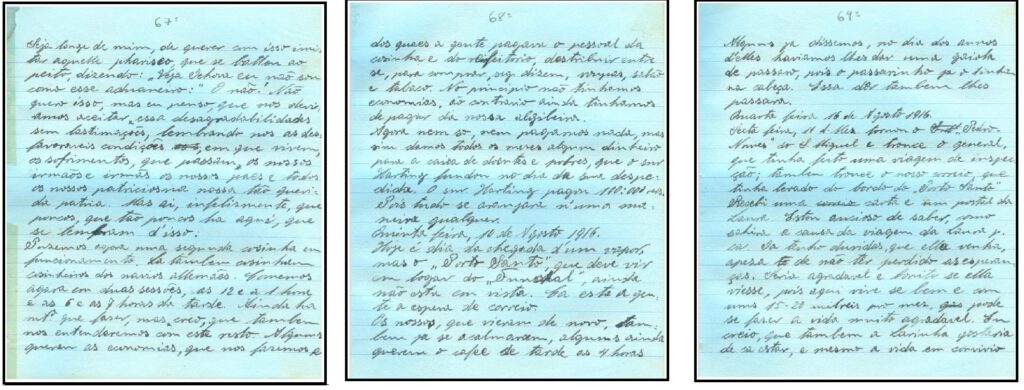 67-
Seja longe de mim, de querer com isso imi-
tar aquelle phariseo, que se batteu ao
peito, dizendo: "Veja Senhora eu não sou
como esse aduaneiro:" O não! Não
quero isso, mas eu penso, que nos devi-
amos aceitar essa desagradabilidades
sem lastimações, lembrando nos as des-
favoraveis condições em que vivem,
os sofrimentos, que passam, os nossos
irmãos e irmãs os nossos paes e todos
os nossos patricios na nossa tão queri-
da patria. Mas ai, infelizmente, que
poucos, que tão poucos ha aqui, que
se lembram d'isso:
Puzemos agora uma segunda cosinha em
funccionamento. La tambem cosinham
cosinheiros dos navios allemães. Comemos
agora em duas sessões, as 12 e a 1 hora
e as 6 e as 7 horas da tarde. Ainda ha
que fazer, mas, creo, que tambem
nos entenderemos com este resto. Alguns
querem as economias, que nos fazemos e
68-
dos quaes a gente pagava o pessoal da
cosinha e do refeitorio, destribuir entre
se, para comprar, segi dizem, roupas, sabão
e tabaco. No principio não tinhamos
economias, ao contrario ainda tinhamos
de pagar da nossa algibeira.
Agora nem so, nem pagamos nada, mas
sim damos todos os mezes algum dinheiro
para a caixa de doentes e pobres, que o snr
Harting fundou no dia da sua despe-
dida. O snr Harting pagou 100:000 reis.
Pois tudo se aranjara n'uma ma-
neira qualquer.
Quinta feira, 10 de Agosto 1916.
Hoje é dia da chegada d'um vapor,
mas o "Porto Santo" que deve vir
em logar do "Funchal", ainda
não esta em vista. Ca esta a gen-
te a espera de correio.
Os nossos, que vieram de novo, tam-
bem ja se acalmaram, algums ainda
querem o café de tarde as 4 horas
69-
Algums ja dissemos, no dia dos annos
d'elles haviamos lhes dar uma gaiola
de passaro, pois o passarinho ja o tinham
na cabeça. Essa dôr tambem lhes
passara.
Quarta feira 16 de Agosto 1916.
Sexta feira, 11 d. Mes tornou o "Pedro
Nunes" do S Miguel e trouce o general,
que tinha feito uma viagem de inspec-
ção; tambem trouce o nosso correio, que
tinha levado do bordo do "Porto Santo"
Recebi uma carta e um postal da
Laura. Estou ancioso de saber, como
sahira a causa da viagem da Laura p.
ca. Ja tenho duvidas, que ella venha,
apesar de não ter perdido as esperan-
ças. Seria agradavel e bonito se ella
viesse, pois aqui vive se bem e com
uns 15-20 milreis por mez, pode
se fazer a vida muito agradavel. Eu
creio, que tambem a Laurinha gostaria
de ca estar, e mesmo a vida em convivio